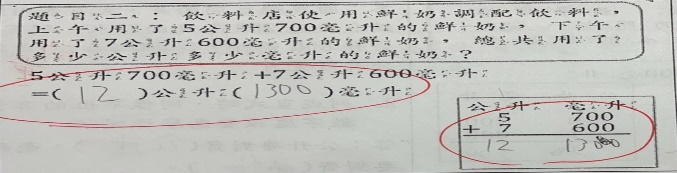 題目二：飲料店使用鮮奶調配飲料，
上午用了5公升700毫升的鮮奶，下午
用了7公升600毫升的鮮奶，總共用了
多少公升多少毫升的鮮奶？
5公升700毫升+7公升600毫升
=( 12 )公升( 1300 )毫升
公升 毫升
5 700
+ 7 600
12 1300